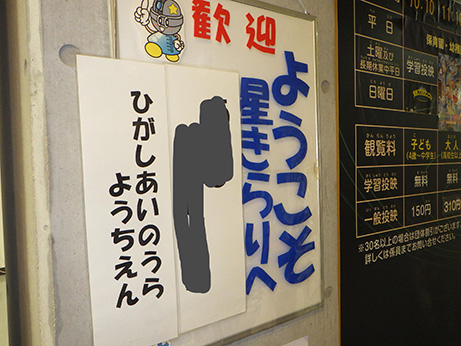 歓迎
ようこそ
星きらりへ
ひがしあいのうら
ようちえん
平日
土曜及び
長期休業中平日
学習投映
日曜日
保育園・幼稚園
かんらんりょう
観覧料
子ども
(4歳〜中学生)
大人
(高校生以上)
学習投映
無料
無料
一般投映
150円
310円
※30名以上の場合は団体割引がございます。
詳しくは係員までお問い合せください。